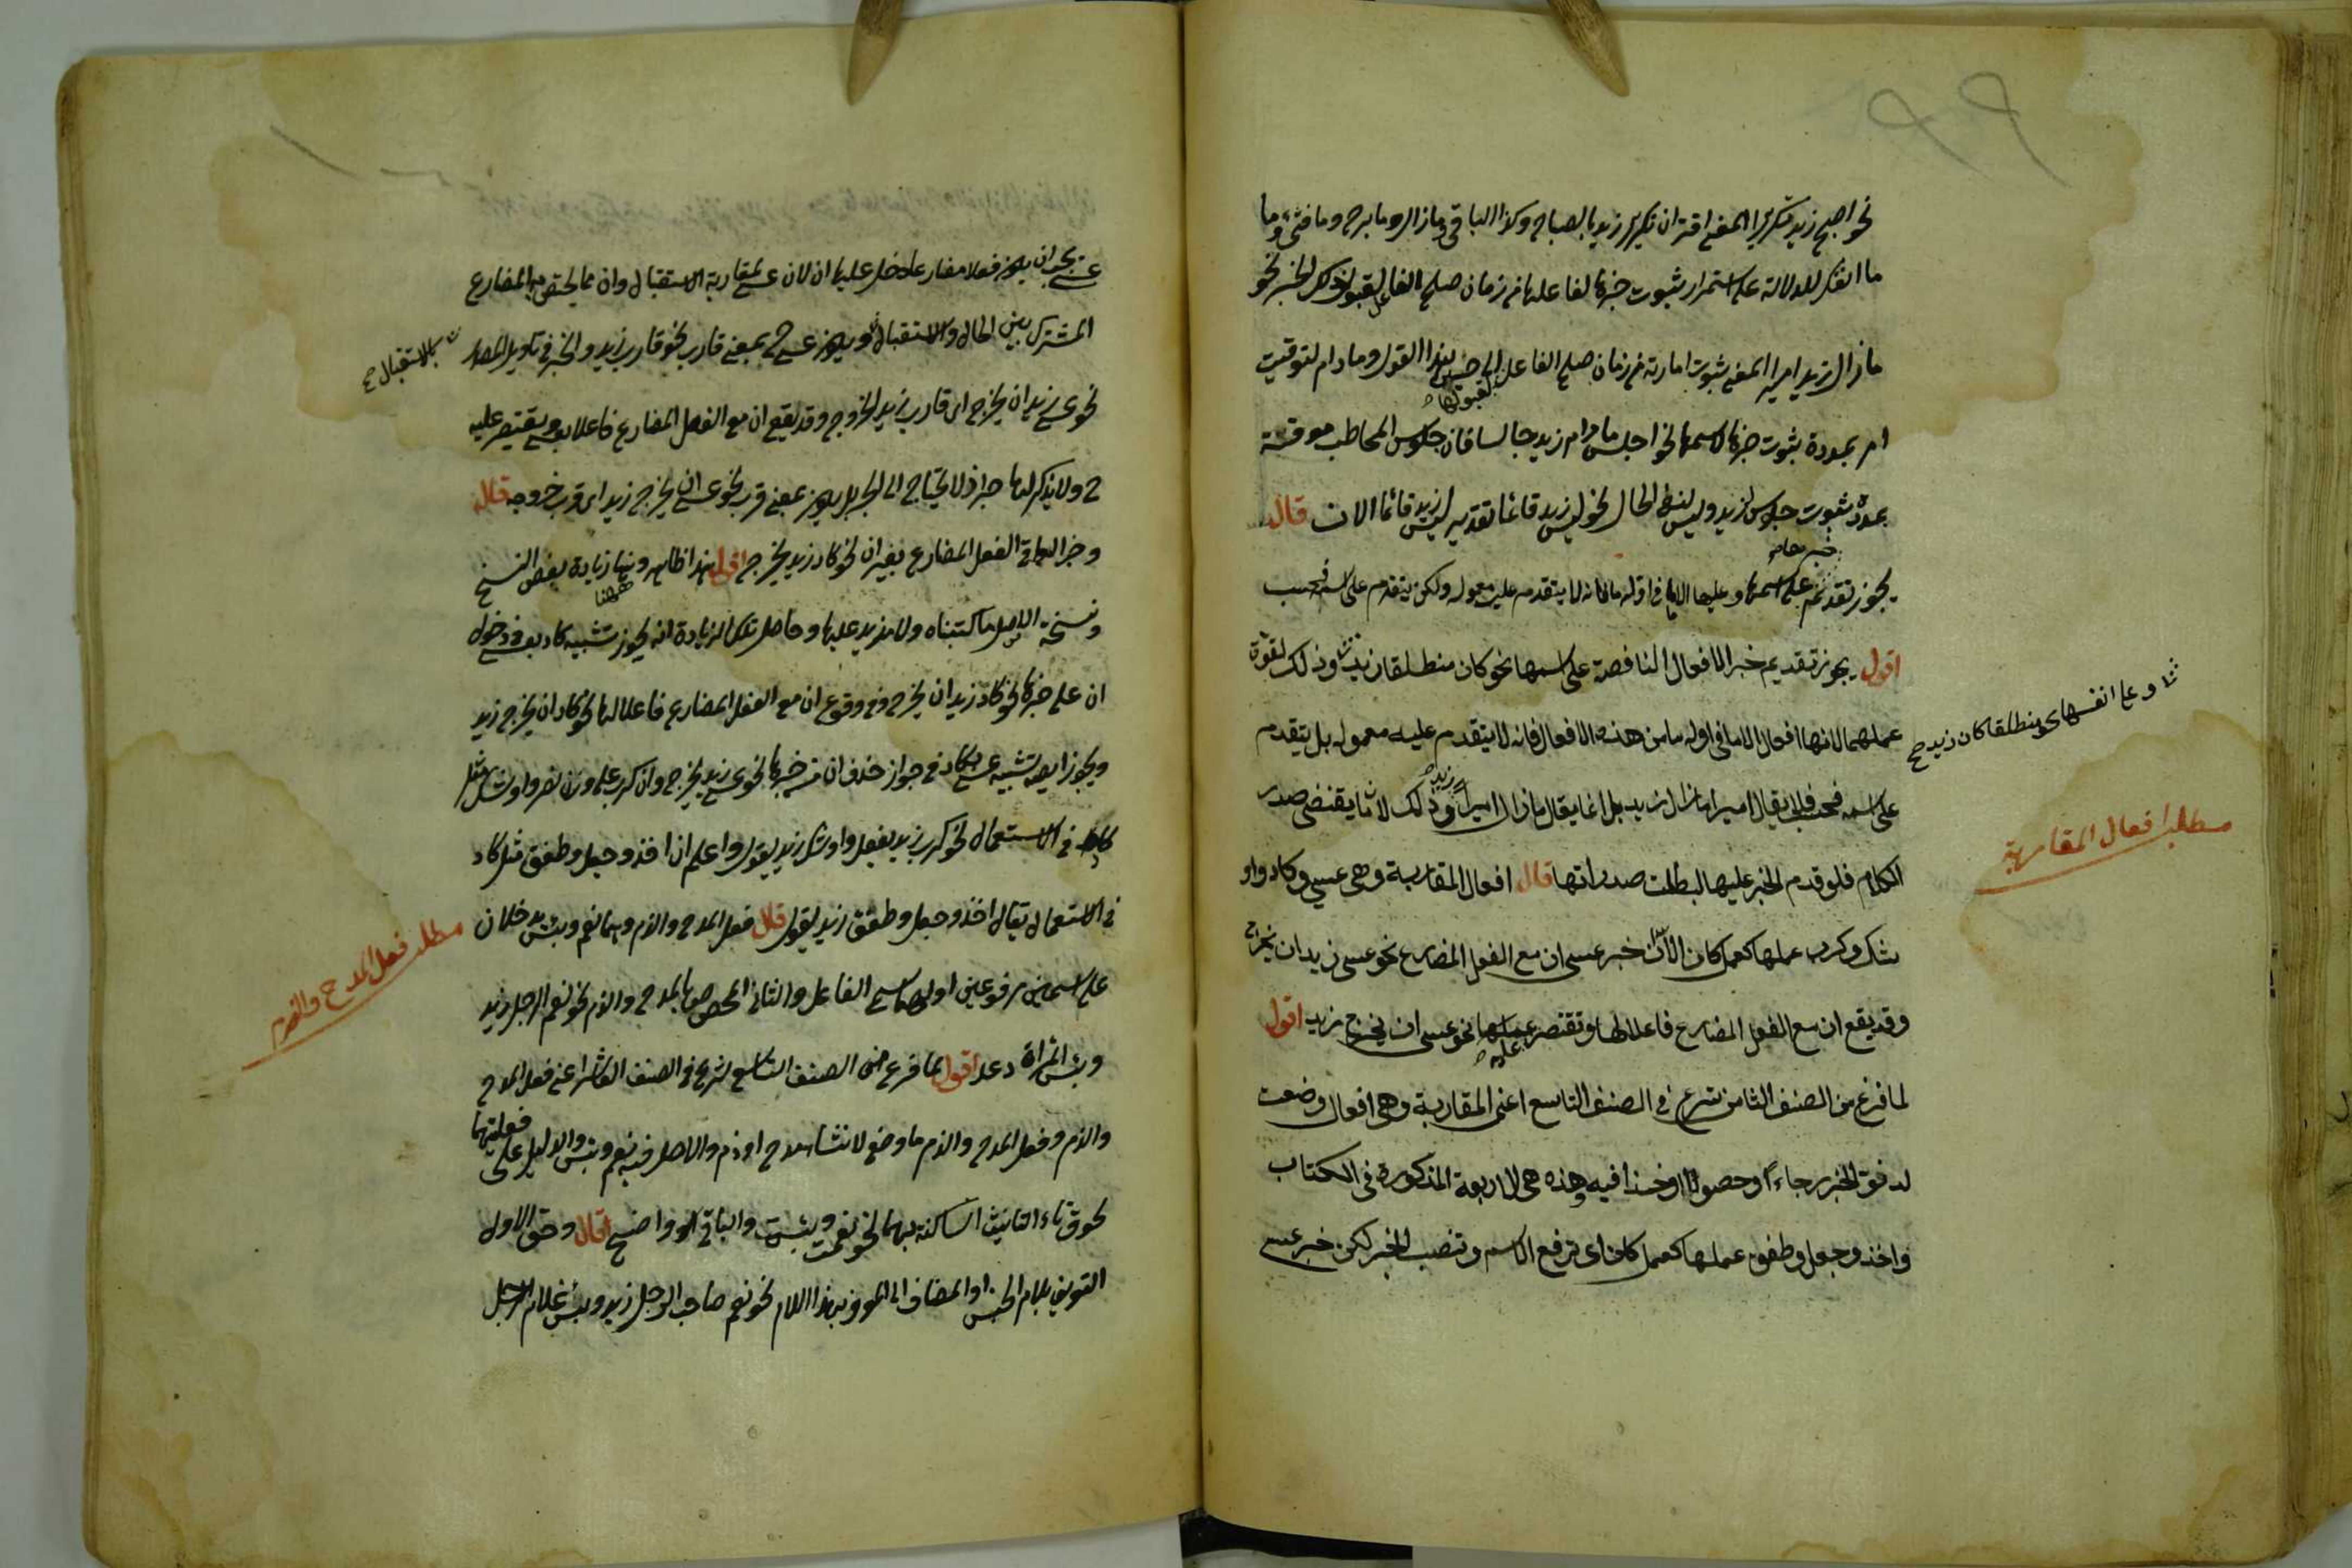 نحو اصبح زيد بتكرير المعنى اقتران تكرير زيد بالصباح وكذا الباقي وما زال وما برح وما فتئ وما
ما انفك للدلالة على استمرار ثبوت خبرها لفاعلها في زمان صلح الفاعل لقبول ذلك الخبر نحو
ما زال زيد اميرا المعنى ثبوت امارته في زمان صلح الفاعل لهذا القول وما دام لتوقيت
لقبولها
امر بمدة ثبوت خبرها لاسمها نحو اجلس ما دام زيد جالسا فان جلوس المخاطب موقتة
بمدة ثبوت جلوس لزيد وليس لنفي الحال نحو ليس زيد قائما تقديره ليس زيد قائما الان قال
يجوز تقديم على اسمها وعليها الا ما في اوله ما فانه لا يتقدم عليه معموله ولكن يتقدم على اسمه فحسب
اقول يجوز تقديم خبر الافعال الناقصة على اسمها نحو كان منطلقا زيد وذلك لقوة
عملها لانها افعال الا ما في اوله ما من هذه الافعال فانه لا يتقدم عليه معموله بل يتقدم
وعلى انفسها نحو منطلقا كان زيد صح
على اسمه فحسب فلا يقال اميرا ما زال زيد بل انما يقال ما زال اميرا زيد وذلك لان ما يقتضى صدر
مطلب افعال المقاربة
الكلام فلو قدم الخبر عليها لبطلت صدراتها قال افعال المقاربة وهى عسى وكاد واو
شك وكرب عملها كعمل كان الا ان خبر عسى ان مع الفعل المضارع نحو عسى زيد ان يخرج
وقد يقع ان مع الفعل المضارع فاعلا لها وتقتصر عليه نحو عسى ان يخرج زيد اقول
لما فرغ من الصنف الثامن شرع في الصنف التاسع اعنى المقاربة وهى افعال وضعت
لدنو الخبر رجاءً او حصولا او اخذا فيه وهذه هى الاربعة المذكورة فى الكتاب
واخذ وجعل وطفق عملها كعمل كان اى ترفع الاسم وتنصب الخبر لكن خبر عسى
عسى يجب ان يكون فعلا مضارعا دخل عليها ان لان عسى لمقاربة الاستقبال وان مما يختص به المضارع
المشترك بين الحال والاستقبال ويكون عسى ح بمعنى قارب نحو قارب زيد والخبر في تاويل المصدر
بالاستقبال صح
نحو عسى زيد ان يخرج اى قارب زيد الخروج وقد يقع ان مع الفعل المضارع فاعلا لعسى ويقتصر عليه
ح ولا يذكر لها خبر اذ لا يحتاج الى الخبر بل يكون بمعنى قرب نحو عسى ان يخرج زيد اى قرب خروجه قال
وخبر البواقى الفعل المضارع بغير ان نحو كاد زيد يخرج اقول هذا ظاهر وههنا زيادة بعض النسخ
ونسخة الاصل ما كتبناه ولا مزيد عليها وحاصل تلك الزيادة انه يجوز تشبيه كاد بعسى فى دخول
ان على خبرها نحو كاد زيد ان يخرج وفي وقوع ان مع الفعل المضارع فاعلا لها نحو كاد ان يخرج زيد
ويجوز ايضا تشبيه عسى بكاد في جواز حذف ان من خبرها نحو عسى زيد يخرج وان كرب على وزن نصر واوشك مثل
كاد في الاستعمال نحو كرب زيد يفعل واوشك زيد يقول واعلم ان اخذ وجعل وطفق مثل كاد
في الاستعمال يقال اخذ وجعل وطفق زيد يقول قال فعل المدح والذم وهما نعم وبئس يدخلان
مطلب فعل المدح والذم
على اسمين مرفوعين اولهما يسمى الفاعل والثانى المخصوص بالمدح والذم نحو نعم الرجل زيد
وبئس المرأة دعد اقول لما فرغ من الصنف التاسع شرع في الصنف العاشر اعنى فعل المدح
والذم وفعل المدح والذم ما وضع لانشاء مدح او ذم والاصل فيه نعم وبئس والدليل على فعليتهما
لحوق تاء التانيث الساكنة بهما نحو نعمت وبئست والباقي واضح قال وحق الاول
التعريف بلام الجنس او المضاف الى المعرف بهذا اللام نحو نعم صاحب الرجل زيد وبئس غلام الرجل